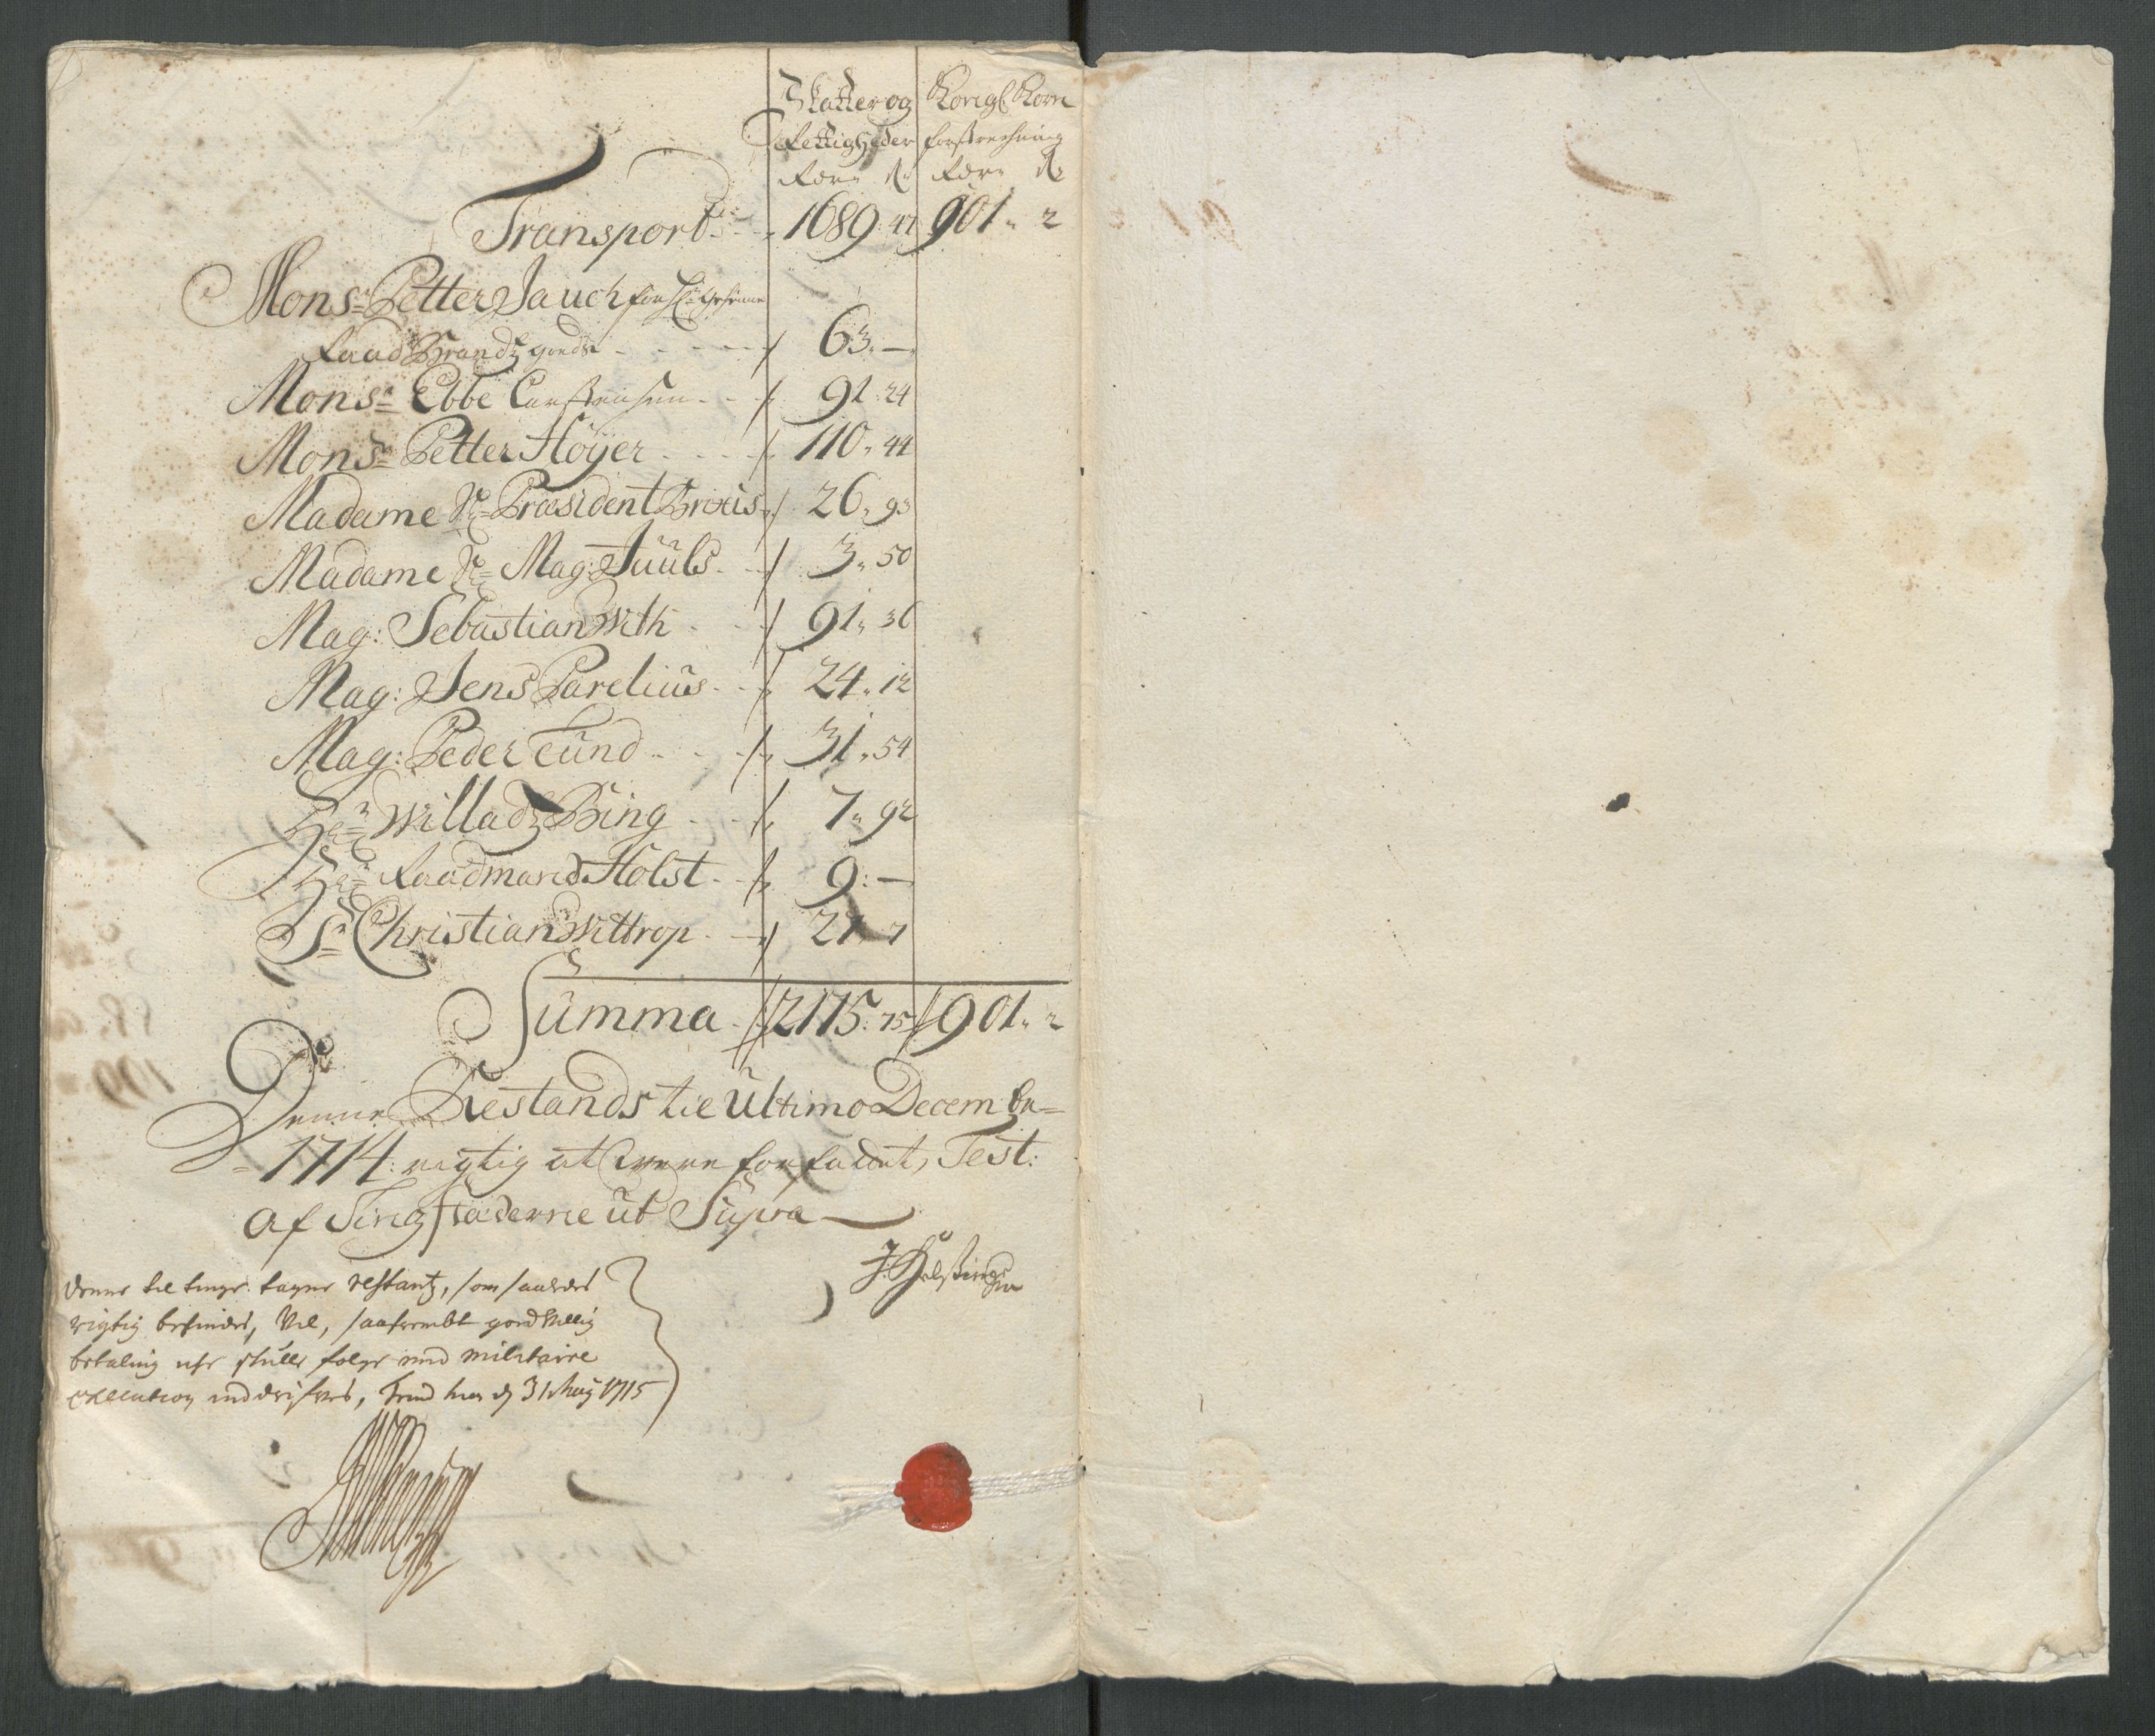 Skatter og Kongl Korn
Rettigheder forstrechning
Transport 1689 : 47 901 „ 2
Mons:r Petter Jauch for
Raad Brandtz goeds 63. —
Mons:r Ebbe Carstensen 91 : 24
Mons:r Petter Höyer 110 „ 44
Madame Sl: Præsident Brixis 26 „ 93
Madame Sl: Mag: Juuls 3 „ 50
Mag: Sebastian With 91 „ 36
Mag: Jens Parelius 24 „ 12
Mag: Peder Lund 31 „ 54
Hr: Willadtz Bing 7 „ 92
Hr: Raadmand Holst 9 : —
Sr: Christian Wittrop
Summa 2175 : 75 901 „ 2
Denne Restands til Ultimo Decembr=
1714 : rigtig at were forfattet, Test:
af Tingstæderne ut Supra
denne til tinge tagne restantz, som saaledes
rigtig befindes, vil, saafrembt goedvillig
betaling iche skulle følge med militaire
execution inddrifves, d 31 Maij 1715